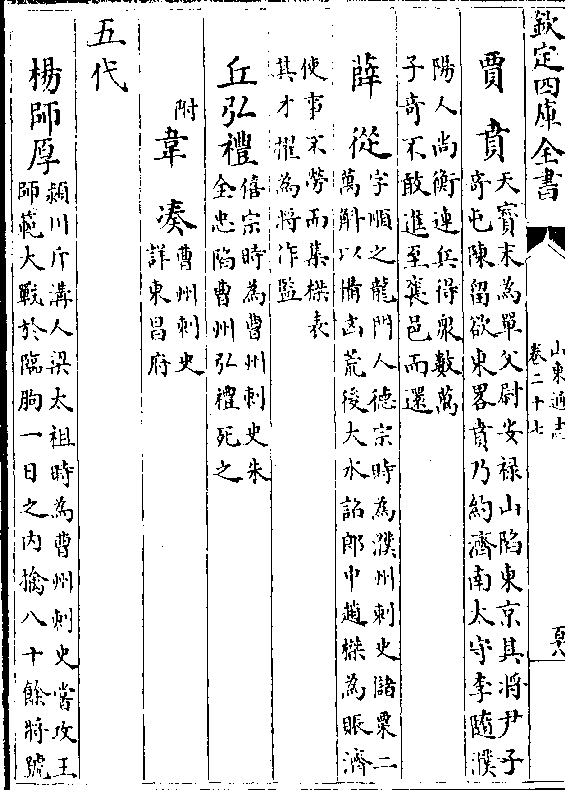 欽定四庫全書
山東通志
卷二十七
百六
賈賁天寶末為單父尉安禄山陷東京其將尹子
竒屯陳留欲東畧賁乃約濟南太守李隨濮
陽人尚衡連兵得衆數萬
子竒不敢進至襄邑而還
薛從字順之龍門人德宗時為濮州刺史儲粟二
萬斛以備凶荒後大水詔郎中趙㯳為賑濟
使事不勞而集㯳表
其才擢為將作監
丘弘禮僖宗時為曹州刺史朱
全忠陷曹州弘禮死之
附
韋凑曹州刺史
詳東昌府
五代
楊師厚潁川斤溝人梁太祖時為曹州刺史嘗攻王
師範大戰於臨朐一日之内擒八十餘將號